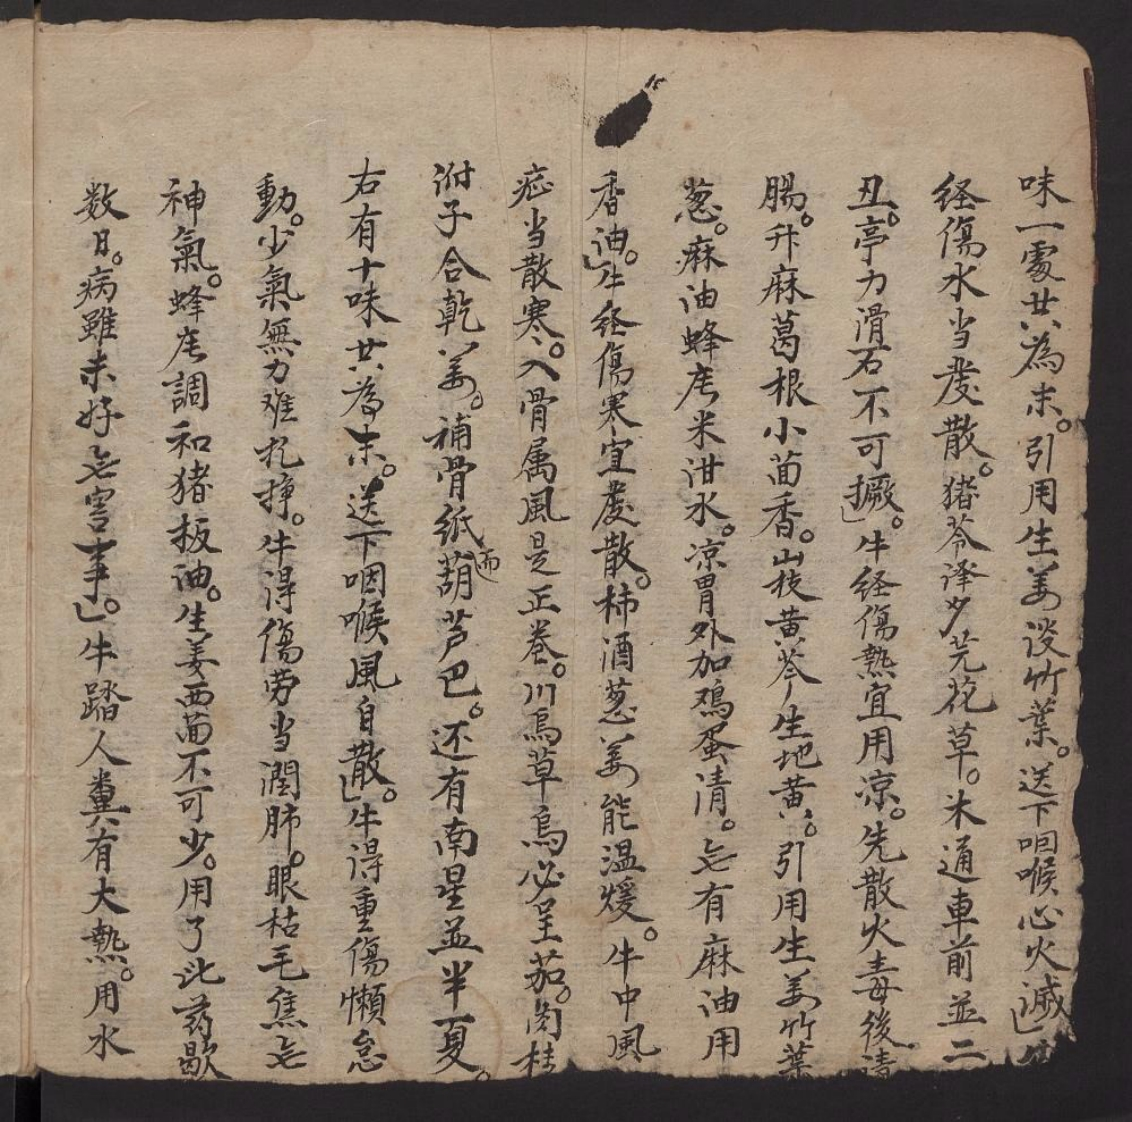 味一處共為末。引用生姜淡竹葉。送下咽喉心火滅」牛
経傷水当發散。猪苓泽夕芫花草。木通車前並二
丑。亭力滑石不可撅」。牛経傷熱宜用凉。先散火毒後清
腸。升麻葛根小茴香。山枝黄芩生地黄。引用生姜竹葉
葱。麻油蜂宻米泔水。凉胃外加鸡蛋清。无有麻油用
香油。」牛経傷寒宜發散。柿酒葱姜能温煖。牛中風
症当散寒。入骨属風是正卷。川烏草烏必呈茄。肉桂
附子合乾姜。補骨纸而葫芦巴。还有南星並半夏。
右有十味共為末。送下咽喉風自散」。牛得重傷懶怠
動。少氣無力难扎挣。牛得傷劳当潤肺。眼枯毛焦无
神氣。蜂宻調和猪板油。生姜西茴不可少。用了此药歇
数日。病雖未好无害事」。牛踏人糞有大熱。用水